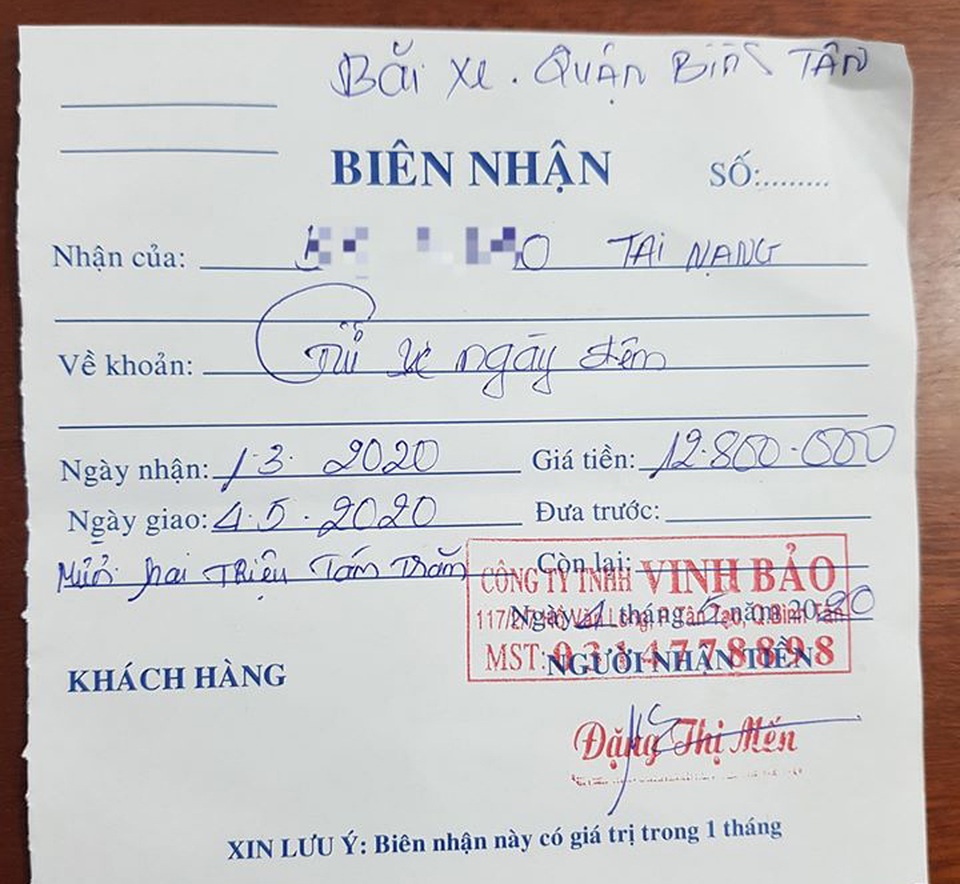 Bãi xe. QUẬN BÌNH TÂN
BIÊN NHẬN
SỐ:.........
Nhận của: TAI NẠNG
Về khoản: Giữ xe ngày đêm
Ngày nhận: 1.3. 2020
Giá tiền: 12.800.000
Ngày giao: 4.5.2020
Đưa trước:
Mười hai Triệu Tám Trăm
Còn lại:
CÔNG TY TNHH VINH BẢO
Ngày 4 tháng 5 năm 2020
Văn Long, P. Tân Tạo, Q.Bình Tân
MST: 0314778898
KHÁCH HÀNG
NGƯỜI NHẬN TIỀN
Đặng Thị Mến
XIN LƯU Ý: Biên nhận này có giá trị trong 1 tháng